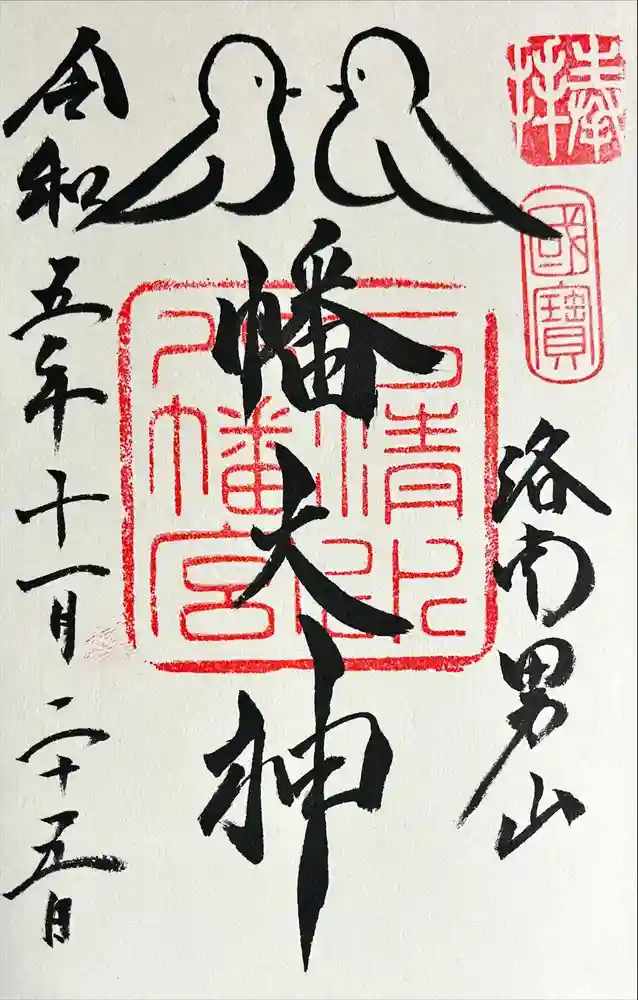 奉拝
國寶
洛南男山
八幡大神
石清水八幡宮
令和五年十一月二十五日